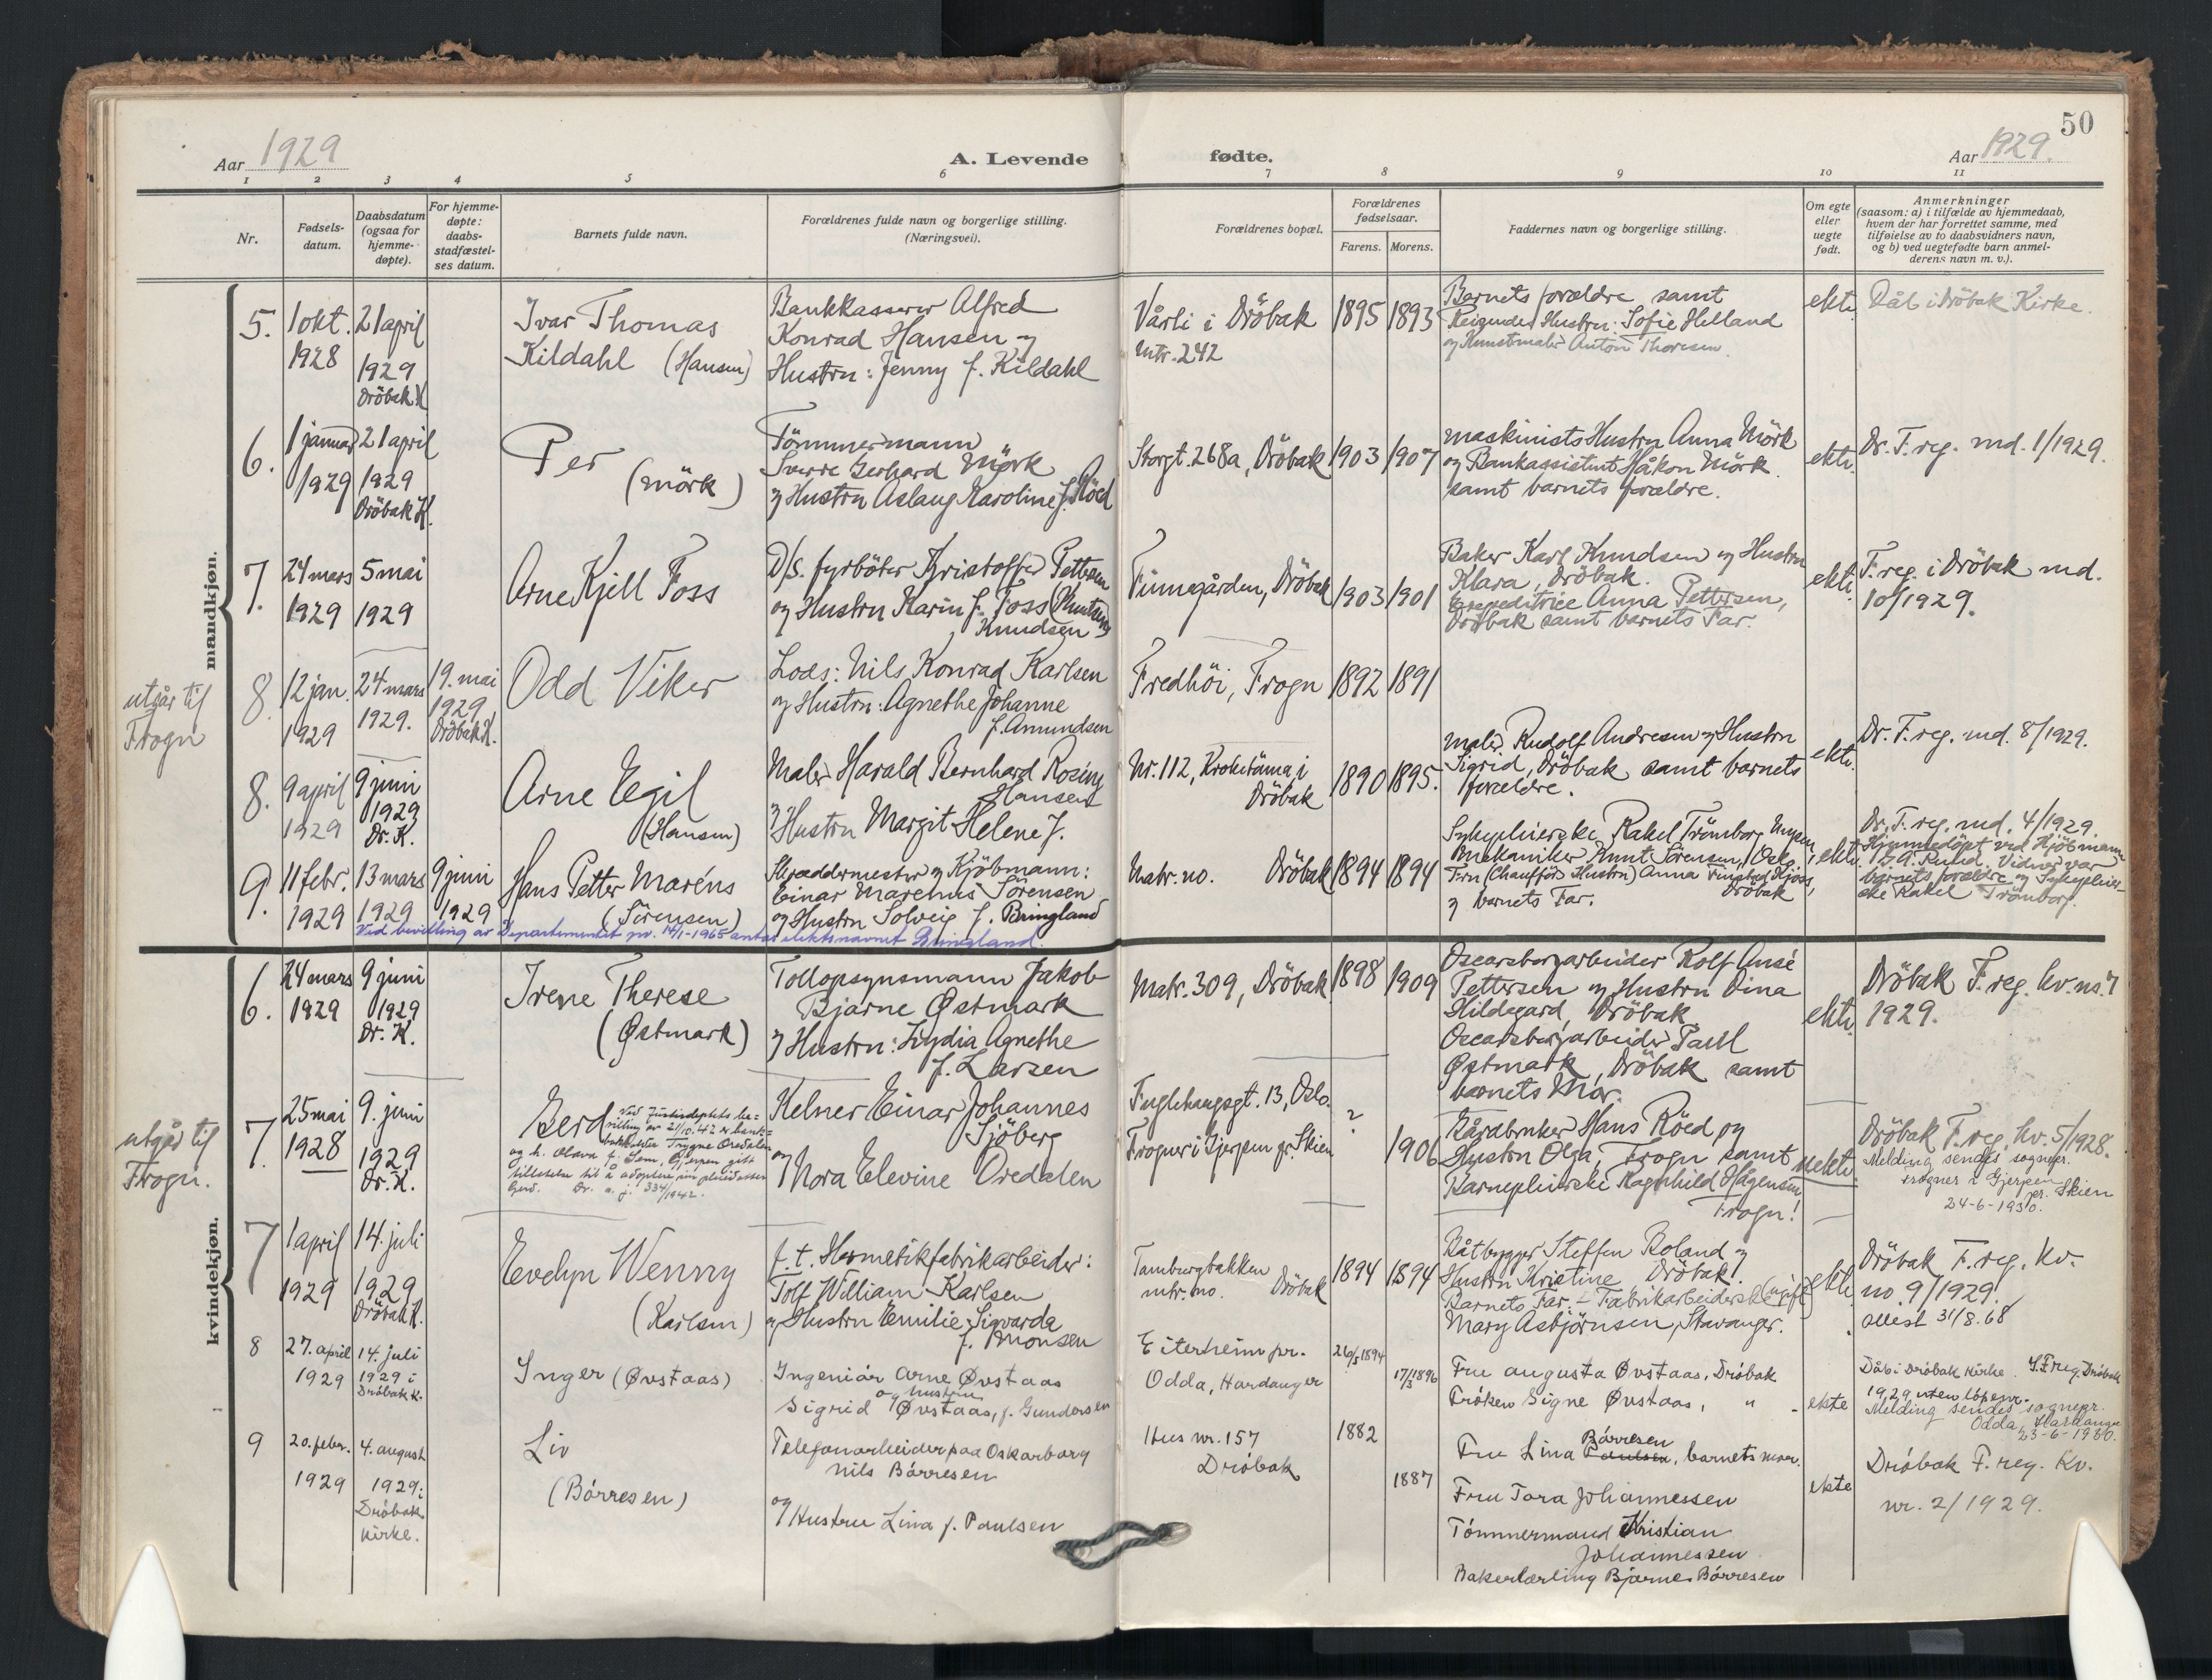 50
Aar 1929
A. Levende fødte.
Aar 1929.
1 2 3 4 5 6 7 8 9 10 11
Nr.
Fødsels-
datum.
Daabsdatum
(ogsaa for
hjemme-
døpte).
For hjemme-
døpte:
daabs-
stadfæstel-
ses datum.
Barnets fulde navn.
Forældrenes fulde navn og borgerlige stilling.
(Næringsvei).
Forældrenes bopæl.
Forældrenes
fødselsaar.
Farens. Morens.
Faddernes navn og borgerlige stilling.
Om egte
eller
uegte
født.
Anmerkninger
(saasom: a) i tilfælde av hjemmedaab,
hvem der har forrettet samme, med
tilføielse av to daabsvidners navn,
og b) ved uegtefødte barn anmel-
derens navn m. v.).
mandkjøn.
5.
1 okt.
1928
21 april
1929
Dröbak K
Ivar Thomas
Kildahl (Hansen)
Bankkasserer Alfred
Konrad Hansen og
Hustru: Jenny f. Kildahl
Vårli i Dröbak
mtr. 242
1895
1893
Barnets forældre samt
Hustru: Sofie Helland
og Kunstmaler Anton Thoresen.
ekte.
Dåb i Dröbak Kirke.
6.
1 januar
1929
21 april
1929
Dröbak K.
Per
(Mörk)
Tömmermann
Sverre Gerhard Mörk
og Hustru Aslaug Karoline f. Röed
Storgt. 268a, Dröbak
1903
1907
maskinists Hustru Anna Mörk
og Bankassistent Håkon Mörk.
samt barnets forældre.
ekte.
Dr. F. reg. md. 1/1929.
7.
24 mars
1929
5 mai
1929
Arne Kjell Foss
D/S. fyrböter Kristoffer Pettersen
og Hustru Karin f. Foss (Knutsen)
Knudsen
Finnegården, Dröbak
1903
1901
Baker Karl Knudsen og Hustru
Klara, Dröbak.
Expeditrice Anna Pettersen,
Dröbak samt barnets Far.
ekte.
F. reg. i Dröbak md.
10/1929.
utgår til
Frogn
8.
12 jan.
1929
24 mars
1929.
19. mai
1929
Dröbak K.
Odd Viker
Lods: Nils Konrad Karlsen
og Hustru: Agnethe Johanne
f. Amundsen
Fredhöi, Frogn
1892
1891
8.
9 april
1929
9 juni
1929
Dr. K.
Arne Egil
(Hansen)
Maler Harald Bernhard Rosing
Hansen
og Hustru Margit Helene f.
Nr. 112, Kroketånna i
Dröbak
1890
1895.
maler Rudolf Andresen og Hustru
Sigrid, Dröbak samt barnets
forældre.
ekte.
Dr. F. reg. md. 8/1929.
9.
11 febr.
1929
13 mars
1929
9 juni
1929
Hans Petter Maréns
(Sörensen)
Skræddermester og Kjöbmann:
Einar Marenus Sörensen
og Hustru Solveig f. Bringland
Matr. no. Dröbak
1894
1894
Sykepleierske Rakel Trömborg
Mekaniker Knut Sörensen, Oslo.
Fru (Chaufför Hustru) Anna
Dröbak
og barnets Far.
ekte.
Dr. F. reg. md. 4/1929.
Hjemmedöpt ved Kjöbmann
J. A. Rund. Vidner var
barnets forældre og Sykepleier-
ske Rakel Trömborg.
Ved bevilling av Departementet pr. 14/1-1965 antar slektsnavnet Bringland.
kvindekjøn.
6.
24 mars
1929
9 juni
1929
Dr. K.
Irene Therese
(Østmark)
Tollopsynsmann Jakob
Bjarne Østmark
og Hustru: Lydia Agnethe
f. Larsen
Matr. 309, Dröbak
1898
1909
Oscarsborgarbeider Rolf Ansé
Pettersen og Hustru Dina
Hildegard, Dröbak
Oscarsborgarbeider Paul
Østmark, Dröbak samt
barnets Mor.
ekte.
Dröbak F. reg. kv. no. 7
1929.
utgår til
Frogn.
7.
25 mai
1928
9. juni
1929
Dr. K.
Gerd
Ved Justisdeptets be-
villing av 21/10.42 er bank-
Trygve Oredalen
og h. Olava f. Sem, Gjerpen gitt
tillatelse til å adoptere sin pleiedatter
Gerd. Dr. a. j. 334/1942.
Kelner Einar Johannes
Sjöberg
og
Nora Elevine Oredalen
Fuglehaugsgt. 13, Oslo.
Frogner i Gjerpen pr. Skien
?
1906
Gårdbruker Hans Röed og
Hustru Olga, Frogn samt
Barnepleierske Ragnhild Hågensen
Frogn!
uekte.
Dröbak F. reg. kv. 5/1928.
Melding sendes sognepr.
Frogner i Gjerpen
pr. Skien
24-6-1930.
7
1 april
1929
14. juli
1929
Dröbak K.
Evelyn Wenny
(Karlsen)
f. t. Hermetikfabrikarbeider:
Tolf William Karlsen
og Hustru Emilie Sigvarda
f. Monsen
Tamburgbakken
mtr. no. Dröbak
1894
1894
Båtbygger Steffen Roland og
Hustru Kristine, Dröbak.
Barnets Far. - Fabrikarbeiderske (ugift)
Mary Asbjörnsen, Stavanger.
ekte.
Dröbak F. reg. Kv.
no 9/1929.
attest 31/8.68
8
27. april
1929
14. juli
1929 i
Dröbak k.
Inger (Øvstaas)
Ingeniör Arne Øvstaas
og hustru
Sigrid Øvstaas, f. Gundersen
Eiterheim pr.
Odda, Hardanger
26/5 1894
17/3 1896
Fru Augusta Øvstaas, Dröbak
Fröken Signe Øvstaas, "
ekte
Dåb i Dröbak Kirke. I F. reg. Dröbak
1929 uten löpenr.
Melding sendes sognepr.
Odda, Hardanger
23-6-1930.
9
20. febr.
1929
4. august
1929 i
Dröbak
kirke.
Liv
(Börresen)
Telefonarbeider paa Oskarborg
Nils Börresen
og Hustru Lina f. Paulsen
Hus nr. 157
Dröbak
1882
1887
Börresen
Fru Lina Paulsen, barnets mor.
Fru Tora Johannessen
Tömmermand Kristian
Johannessen
Bakerlærling Bjarne Börresen
ekte
Dröbak F. reg. Kv.
nr. 2/1929.